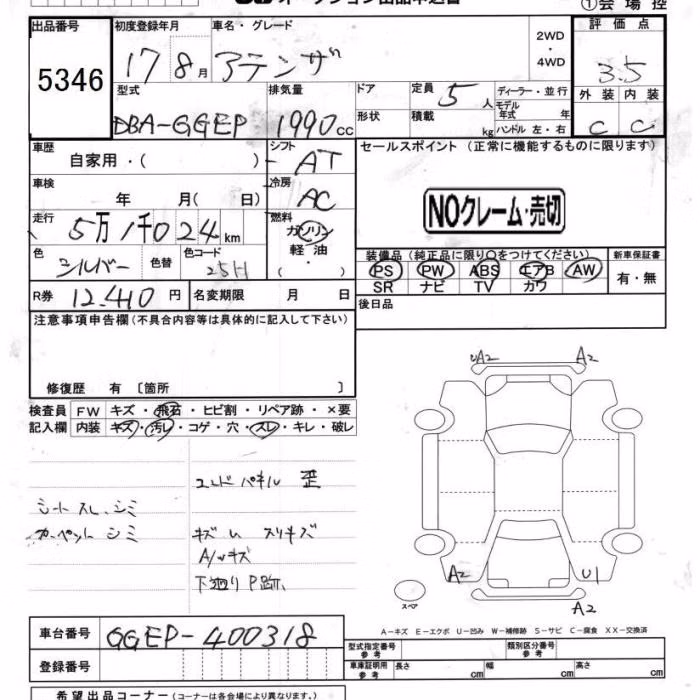 オークション出品申込書
①会場控
出品番号 初度登録年月 車名・グレード 2WD ・ 4WD 評価点
5346 17 8月 アテンザ 3.5
型式 排気量 ドア 定員 5人 ディーラー・並行 外装 内装
DBA-GGEP 1990cc 形状 積載 kg モデル年式 年 ハンドル 左・右 C C
車歴 自家用・( ) シフト AT セールスポイント (正常に機能するものに限ります)
車検 年 月( 日) 冷房 AC
NOクレーム・売切
走行 5万1千024km 燃料 ガソリン 軽油 ・( )
色 シルバー 色替 色コード 25H
装備品(純正品に限り○をつけてください) 新車保証書
PS PW ABS エアB AW 有・無
SR ナビ TV カワ
R券 12.410円 名変期限 月 日 後日品
注意事項申告欄(不具合内容等は具体的に記入して下さい)
修復歴 有 〔箇所 〕
検査員 FW キズ・飛石・ヒビ割・リペア跡・×要
記入欄 内装 キズ・汚レ・コゲ・穴・スレ・キレ・破レ
エンドパネル 歪
シートスレ、シミ
カーペットシミ キズ スリキズ
A/Wキズ
下廻りP跡、
A2 A2
A2 U1
スペア A2
A-キズ E-エクボ U-凹み W-補修跡 S-サビ C-腐食 XX-交換済
車台番号 GGEP-400318
型式指定番号 参考 類別区分番号 参考
登録番号 車庫証明用 参考 長さ cm 幅 cm 高さ cm
希望出品コーナー(コーナーは各会場により異なります。)